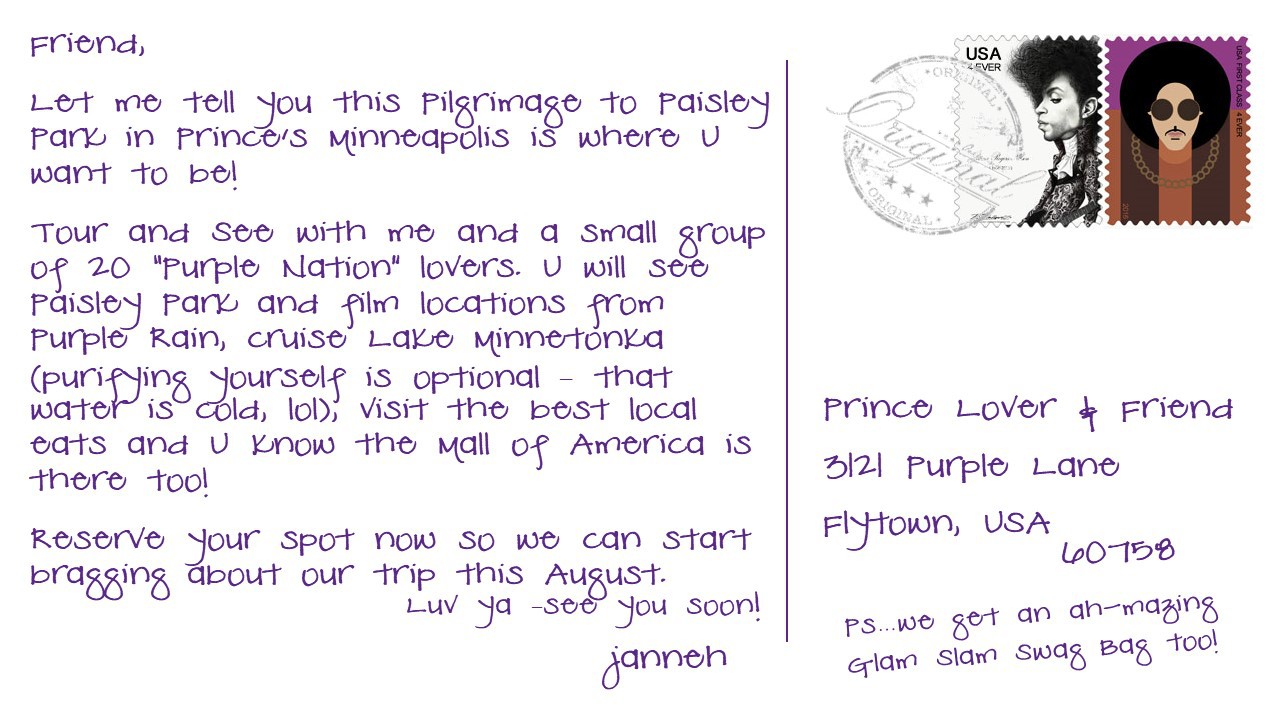 Friend,
Let me tell you this Pilgrimage to Paisley
Park in Prince's Minneapolis is where U
want to be!
Tour and see with me and a small group
of 20 "Purple Nation" lovers. U will see
Paisley Park and film locations from
Purple Rain, cruise Lake Minnetonka
(purifying yourself is optional - that
water is cold, lol); visit the best local
eats and U know the Mall of America is
there too!
Reserve your spot now so we can start
bragging about our trip this August.
Luv ya -see you soon!
janneh
USA
4 EVER
ORIGINAL
Original
ORIGINAL
USA FIRST CLASS 4 EVER
2016
Prince Lover & Friend
3121 Purple Lane
Flytown, USA
60758
PS...we get an ah-mazing
Glam Slam Swag Bag too!